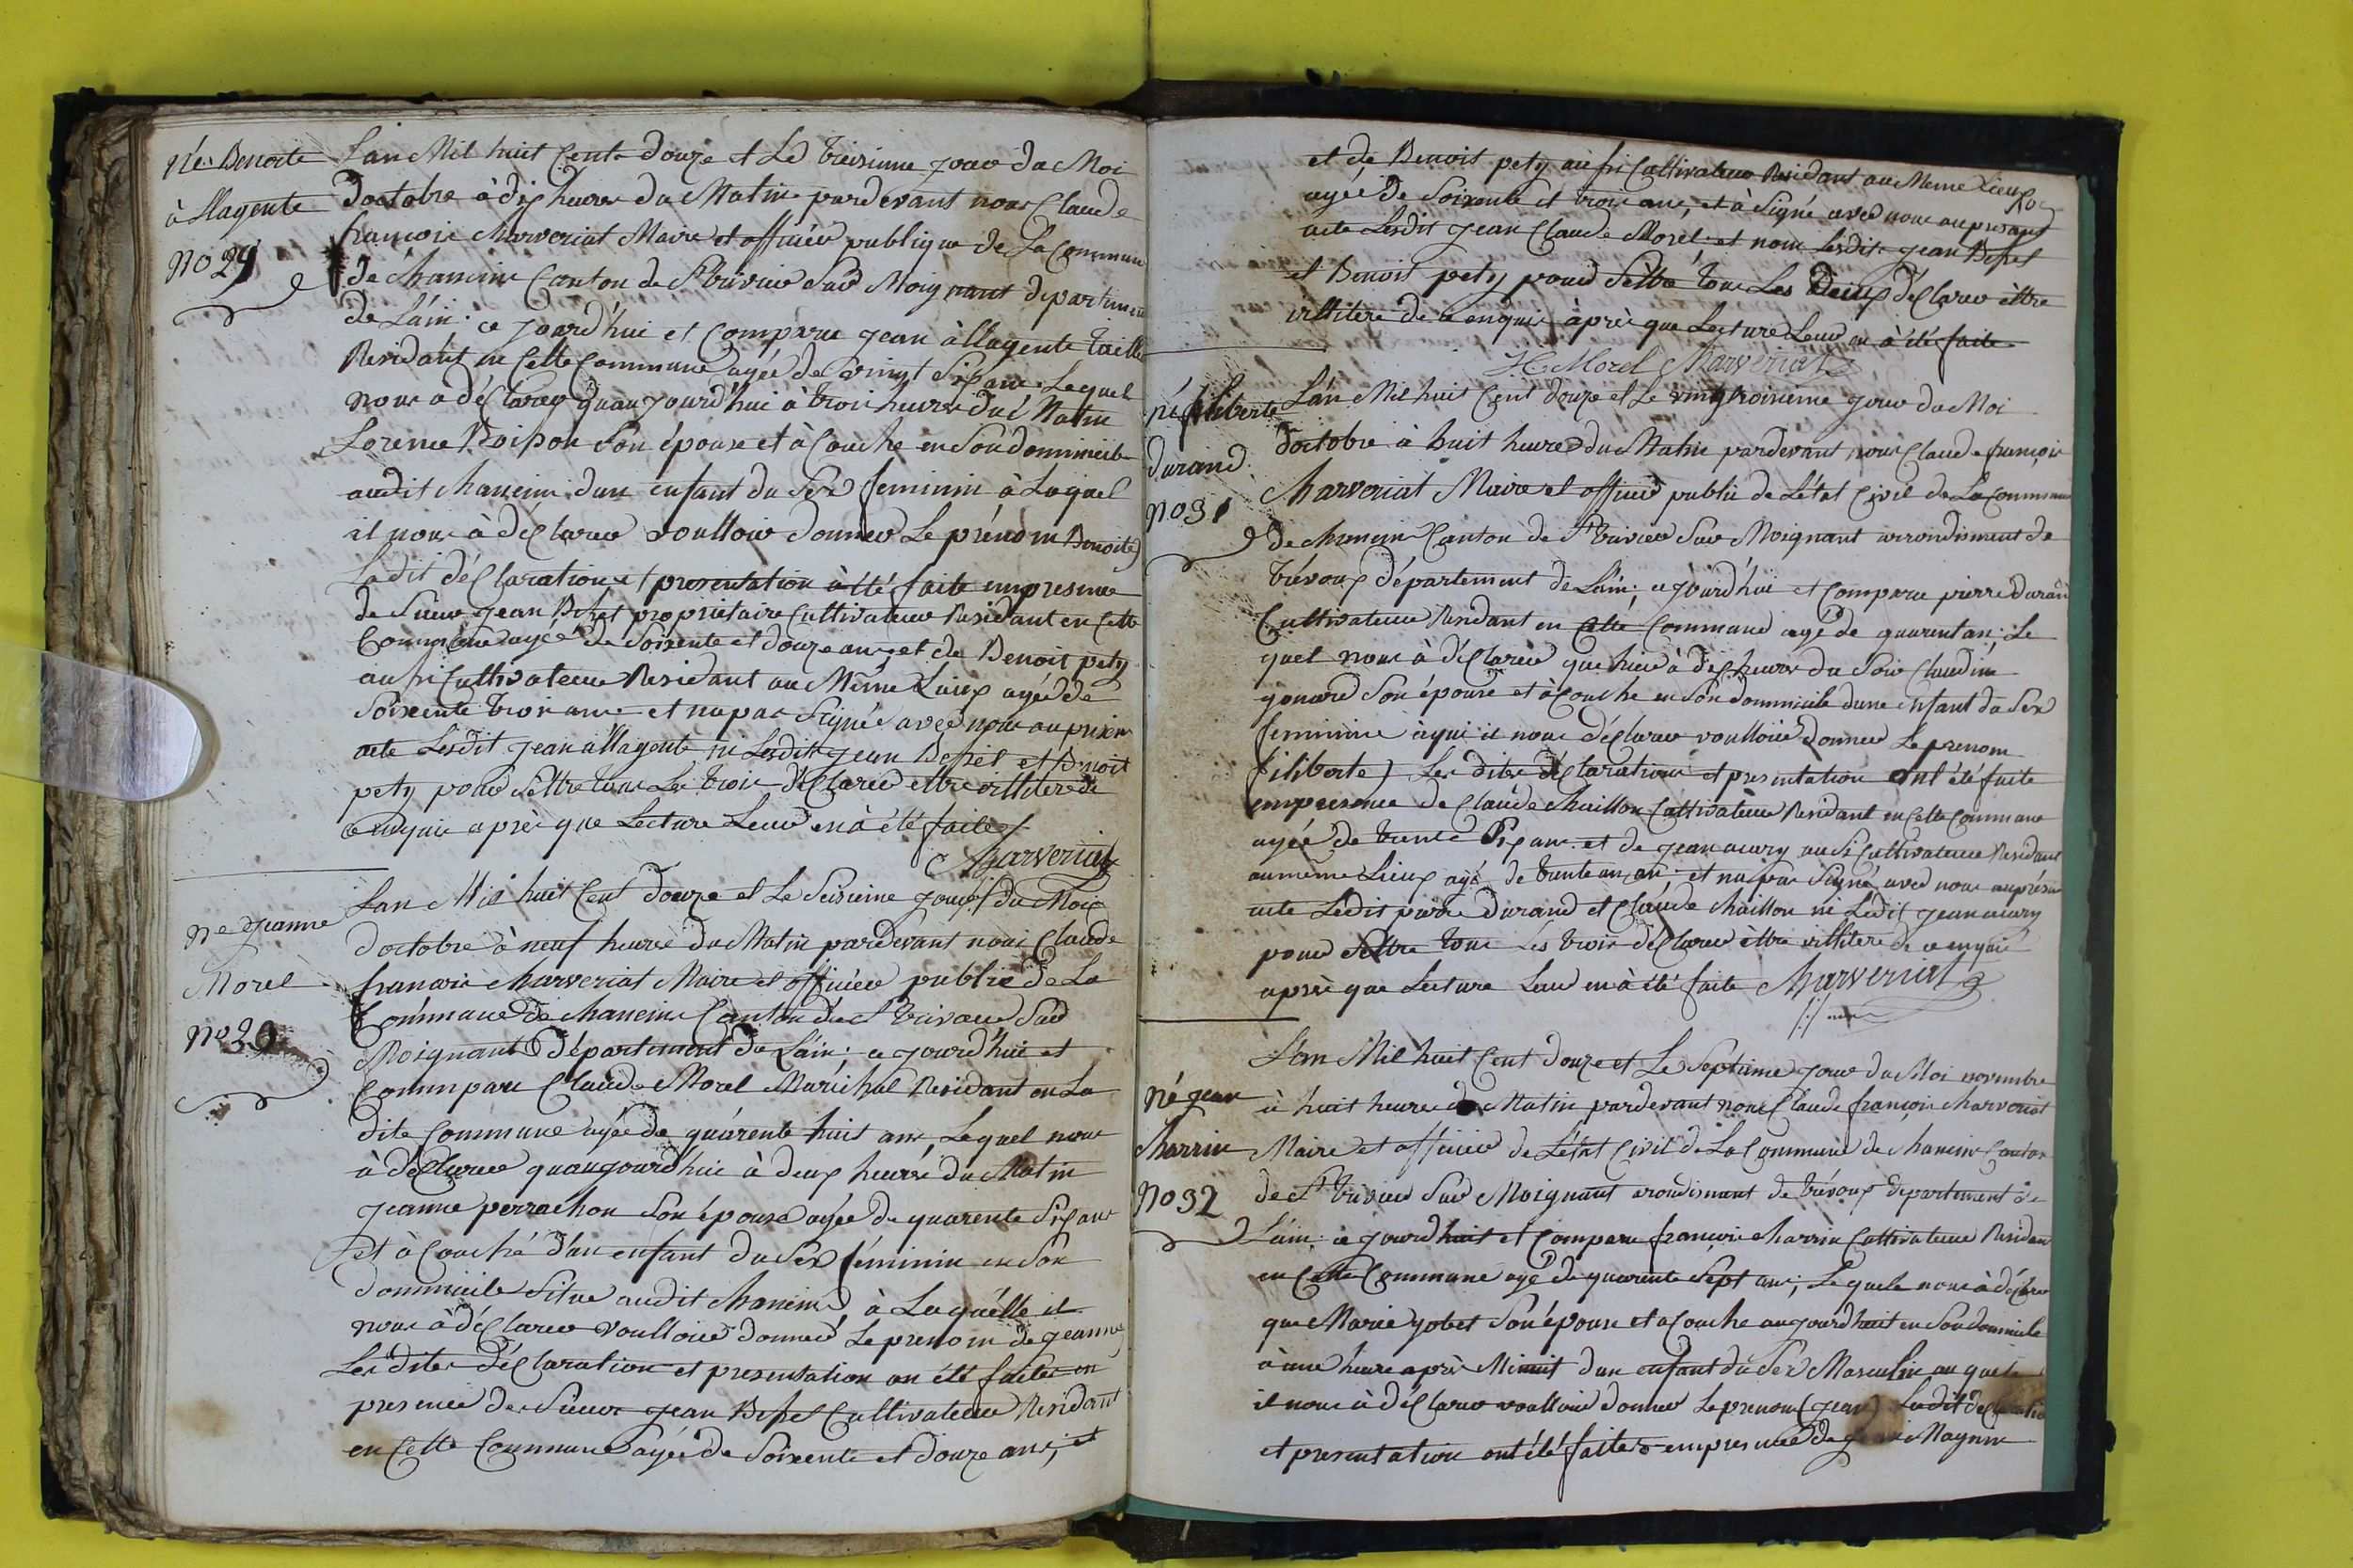 né Benoite
à Magente
No 29
Lan Mil huit Cent douze et Le treisieme jour du Moi
doctobre à dix heures du Matin pardevant nous Claude
francois Charveriat Maire et officiée publique de La Commun
de chaneins Canton de St trivier sur Moignant departement
de Láin. ce jourd'hui et Comparu jean à Magente taille
Residant en Cette Commune agée de vingt six ans. Lequel
nous a déClarer quaujourd'hui à trois heures du Matin
Lorence Boisson son épouse et à Couche en son dommicile
audit chaneins dun enfant du Sex feminin à Laquel
il nous à déClarer voulloir donner Le prénom Benoite)
Ladit déClaration et presentation à été faite en presence
de Sieur jean Besset propriétaire Cultivateur Residant en Cette
Commune agée de soixente et douze ans, et de Benoit pety
aussi Cultivateur Residant au Même Lieux agée de
soixente trois ans et na pas Signée avec nous au présen
acte Lesdit jean à Magente ni Lesdit jean Besset et Benoit
pety pour settre tous Les trois déClarer ettre illitere de
ce enquis après que Lecture Leur en à été faite
Charveriat
ne jeanne
Morel
No 30
Lan Mil huit Cent douze et Le Seisieme jour du Moi
doctobre à neuf heures du Matin pardevant nous Claude
francois Charveriat Maire et officiée public de La
Commune de chaneins Canton de St trivier sur
Moignant département de Láin; ce jourd'hui et
Commparu Claude Morel Maréchal Residant en La
dite Commune agée de quarente huit ans, Lequel nous
à déClarer quaujourd'hui à deux heures du Matin
jeanne perrachon son épouse agée de quarente six ans
et à Couché d'un enfant du Sex féminin en son
dommicile situe audit chaneins, à Laquélle il
nous à déClarer voulloir donner Le prenom de jeanne
Les dites déClaration et presentation on été faites en
presence de Sieur jean Besset Cultivateur Residant
en Cette Commune agée de soixente et douze ans; et
et de Benoit pety aussi Cultivateur Residant au Meme Lieux
agée de soixente et trois ans, et à Signé avec nous au present
acte Lesdit jean Claude Morel et nom Lesdit jean Besset
et Benoit pety pour settre tous Les deux déClarer èttre
illitere de ce enquis après que Lecture Leur en à été faite
Morel Charveriat
né filiberte
durand
No 31
Lán Mil huit Cent douze et Le vingtroisieme jour du Moi
doctobre à huit heures du Matin pardevant nous Claude françois
Charveriat Maire et officier public de Létat Civil de La Commune
de chanein Canton de St trivier sur Moignant arrondisment de
trévoux département de Láin; ce jourd'hui et Comparu pierre durand
Cultivateur Residant en Cette Commune agé de quarent an; Le
quel nous à déClarer que hier à dix heures du soir Claudine
gonard son épouse et à Couche en son dommicile dune enfant du Sex
feminine à qui il nous déClarer voulloir donner Le prenom
(filiberte) Les dites déClaration et presentation ont été faite
en presence de Claude chaillon Cultivateur Residant en Cette Commune
agée de trente six ans. et de jean aury aussi Cultivateur Residant
au même Lieux agé de trente an et na pas Signé avec nous au présen
acte Ledit piere Durand et Claude chaillon ni Ledit jean aury
pour settre tous Les trois déClarer èttre illitere de ce enquis
après que Lecture Leur en à été faite Charveriat
né jean
charrin
No 32
Lán Mil huit Cent douze et Le Septieme jour du Moi novembre
à huit heures du Matin pardevant nous Claude françois Charveriat
Maire et officier de Létat Civil de La Commune de chaneins Canton
de St trivier sur Moignant arondismant de trévoux departement de
Láin; ce jourd huit et Comparu françois charrin Cultivateur Residan
en Cette Commune agé de quarente sept ans; Lequele nous à déClarer
que Marie gobet son épouse et a Couche aujourdhuit en son dommicile
à une heure après Minuit dun enfant du Sex Masculin au quele
il nous à déClarer voulloir donner Le prenom (jean) Ladit déClaratio
et presentation ont été faites en presence de Magnin